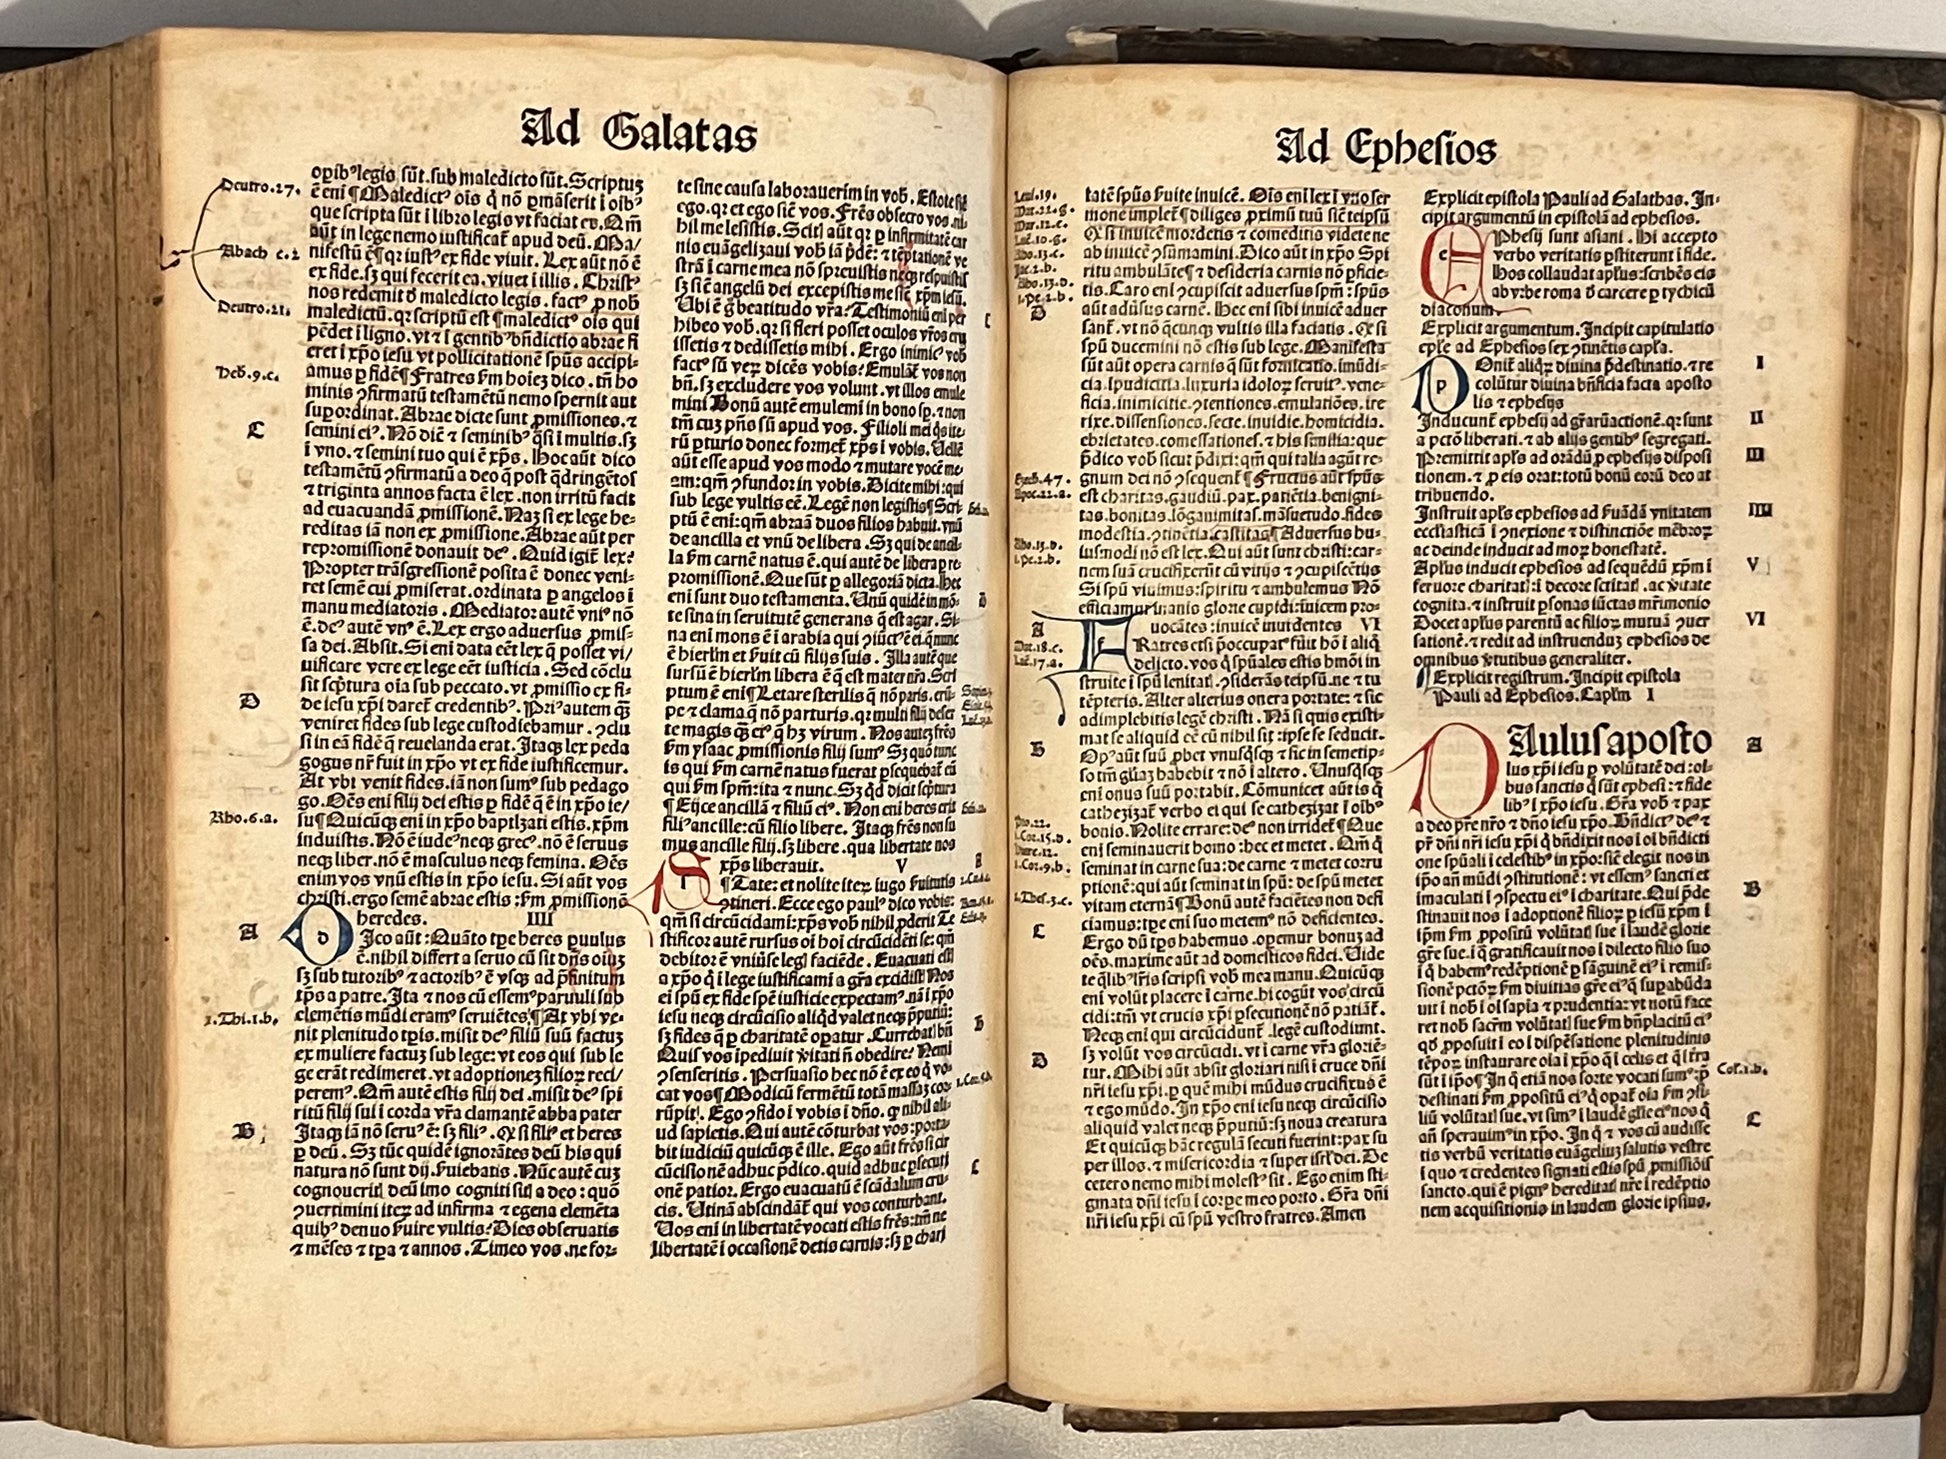 Ad Galatas
Deutro.27.
Abach c.2
Deutro.21.
Heb.9.c.
C
D
Rho.6.a.
A
B
opib⁹ legis sūt.sub maledicto sūt.Scriptuʒ
ē eni ¶ Maledict⁹ oīs q̄ nō ꝑmāserit ī oīb⁹
que scripta sūt ī libro legis vt faciat ea. Qm̄
aūt in lege nemo iustificat̄ apud deū. Ma/
nifestū ē ¶ qꝛ iust⁹ ex fide viuit. Lex aūt nō ē
ex fide.sʒ qui fecerit ea.viuet ī illis. Christ⁹
nos redemit đ maledicto legis. fact⁹ ꝓ nob̄
maledictū.qꝛ scriptū est ¶ maledict⁹ oīs qui
pēdet ī ligno.vt ⁊ ī gentib⁹ bn̄dictio abrae fi
eret ī xp̄o iesu vt pollicitationē sp̄us accipi-
amus ꝑ fidē ¶ Fratres ẜm hoīeʒ dico. tn̄ ho
minis ꝯfirmatū testamētū nemo spernit aut
supordinat. Abrae dicte sunt ꝓmissiones.⁊
semini ei⁹. Nō dic̄ ⁊ seminib⁹ q̄si ī multis.sʒ
ī vno.⁊ semini tuo qui ē xp̄s. Hoc aūt dico
testamētū ꝯfirmatū a deo q̄ post q̄dringētos
⁊ triginta annos facta ē lex.non irritū facit
ad euacuandā ꝓmissionē. Naʒ si ex lege he-
reditas iā non ex ꝓmissione. Abrae aūt per
repromissionē donauit de⁹. Quid igit̄ lex?
Propter trāsgressionē posita ē donec veni-
ret semē cui ꝓmiserat.ordinata ꝑ angelos ī
manu mediatoris. Mediator autē vni⁹ nō
ē.de⁹ autē vn⁹ ē. Lex ergo aduersus ꝓmis-
sa dei. Absit. Si eni data eēt lex q̄ posset vi/
uificare vere ex lege eēt iusticia. Sed cōclu
sit sc̄ptura oīa sub peccato.vt ꝓmissio ex fi-
de iesu xp̄i daret̄ credentib⁹. Pri⁹ autem qʒ
veniret fides sub lege custodiebamur. ꝯclu
si in eā fidē q̄ reuelanda erat. Itaqʒ lex peda
gogus nr̄ fuit in xp̄o vt ex fide iustificemur.
At vbi venit fides.iā non sum⁹ sub pedago
go. Oēs eni filij dei estis ꝑ fidē q̄ ē in xp̄o ie/
su ¶ Quicūqʒ eni in xp̄o baptizati estis.xp̄m
induistis. Nō ē iude⁹neqʒ grec⁹.nō ē seruus
neqʒ liber.nō ē masculus neqʒ femina. Oēs
enim vos vnū estis in xp̄o iesu. Si aūt vos
christi.ergo semē abrae estis :ẜm ꝓmissionē
heredes. IIII
Dico aūt : Quāto tp̄e heres ꝑuulus
ē.nihil differt a seruo cū sit dn̄s oīuʒ
sʒ sub tutorib⁹ ⁊ actorib⁹ ē vsqʒ ad p̄finitum
tp̄s a patre. Ita ⁊ nos cū essem⁹ paruuli sub
elemētis mūdi eram⁹ seruiētes ¶ At vbi ve-
nit plenitudo tp̄is.misit de⁹ filiū suū factuʒ
ex muliere factuʒ sub lege: vt eos qui sub le
ge erāt redimeret.vt adoptioneʒ filioꝝ reci/
perem⁹. Qm̄ autē estis filij dei .misit de⁹ spi
ritū filij sui ī corda vr̄a clamantē abba pater
Itaqʒ iā nō seru⁹ ē: sʒ fili⁹. Qꝫ si fili⁹ et heres
ꝑ deū. Sʒ tūc quidē ignorātes deū his qui
natura nō sunt dij ẜuiebatis. Nūc autē cuʒ
cognoueritꝭ deū imo cogniti sitꝭ a deo : quō
ꝯuertimini iteꝝ ad infirma ⁊ egena elemēta
quib⁹ denuo ẜuire vultis? Dies obseruatis
⁊ mēses ⁊ tp̄a ⁊ annos. Timeo vos .ne for-
te sine causa laborauerim in vob̄. Estote sic̄
ego.qꝛ et ego sic̄ vos. Fr̄es obsecro vos .ni-
hil me lesistis. Scitꝭ aūt qꝛ ꝑ infirmitatē car
nis euāgelizaui vob̄ iā p̄dē: ⁊ tēptationē ve
strā ī carne mea nō spreuistis neqʒ respuistis
sʒ sic̄ angelū dei excepistis me sic̄ xp̄m iesū.
Ubi ē ḡ beatitudo vr̄a? Testimoniū eni per
hibeo vob̄.qꝛ si fieri posset oculos vr̄os eru
issetis ⁊ dedissetis mihi. Ergo inimic⁹ vob̄
fact⁹ sū veꝝ dicēs vobis? Emulāt̄ vos non
bn̄.sʒ excludere vos volunt .vt illos emule
mini Bonū autē emulemī in bono sp̄.⁊ non
tm̄ cuʒ pn̄s sū apud vos. Filioli mei q̄s ite-
rū ꝑturio donec formet̄ xp̄s ī vobis. Uellē
aūt esse apud vos modo ⁊ mutare vocē me-
am:qm̄ ꝯfundor in vobis. Dicite mihi :qui
sub lege vultis eē. Legē non legistis ¶ Scri-
ptū ē eni:qm̄ abraā duos filios habuit.vnū
de ancilla et vnū de libera . Sʒ qui de ancil-
la ẜm carnē natus ē.qui autē de libera ꝑ re-
promissionē. Que sūt ꝑ allegoriā dicta. Hec
eni sunt duo testamenta. Unū quidē in mō-
te sina in seruitutē generans q̄ est agar. Si-
na eni mons ē ī arabia qui ꝯiūct⁹ ē ei q̄ nunc
ē hierl̄m et ẜuit cū filijs suis . Illa autē que
sursū ē hierl̄m libera ē q̄ est mater nr̄a. Scri
ptum ē eni ¶ Letare sterilis q̄ nō paris.erū-
pe ⁊ clama q̄ nō parturis.qꝛ multi filij deser
te magis qʒ ei⁹ q̄ hʒ virum . Nos auteʒ fr̄es
ẜm ysaac ꝓmissionis filij sum⁹ Sʒ quō tunc
is qui ẜm carnē natus fuerat ꝑsequebat̄ eū
qui ẜm spm̄:ita ⁊ nunc. Sʒ qd̄ dicit sc̄ptura
¶ Eijce ancillā ⁊ filiū ei⁹. Non eni heres erit
fili⁹ancille:cū filio libere. Itaqʒ fr̄es non su
mus ancille filij.sʒ libere. qua libertate nos
xp̄s liberauit. V
¶ State: et nolite iteꝝ iugo ẜuitutis
ꝯtineri. Ecce ego paul⁹ dico vobis:
qm̄ si circūcidami:xp̄s vob̄ nihil ꝓderit Te
stificor autē rursus oī hoī circūcidēti se: qm̄
debitor ē vniūse legꝭ faciēde. Euacuati estꝭ
a xp̄o qui ī lege iustificami a gr̄a excidistꝭ Nos
ei sp̄u ex fide spē iusticie expectam⁹.nā ī xp̄o
iesu neqʒ circūcisio aliqd̄ valet neqʒ p̄putiū:
sʒ fides q̄ ꝑ charitatē oꝑatur .Currebatꝭ bn̄
Quis vos īpediuit v̄itati nō obedire? Nemi
ꝯsenseritis . Persuasio hec nō ē ex eo q̄ vo-
cat vos ¶ Modicū fermētū totā massaʒ cor-
rūpit. Ego ꝯfido ī vobis ī dn̄o. qꝫ nihil ali-
ud sapietis. Qui autē cōturbat vos:porta-
bit iudiciū quicūqʒ ē ille. Ego aūt fr̄es si cir
cūcisionē adhuc p̄dico.quid adhuc ꝑsecuti
onē patior. Ergo euacuatū ē scādalum cru-
cis. Utinā abscindāt̄ qui vos conturbant.
Uos eni in libertatē vocati estis fr̄es:tm̄ ne
libertatē ī occasionē detis carnis:sʒ ꝑ chari
C
D
A
B
C
Ad Ephesios
Leui.19.
Mat.22.g.
Mar.12.c.
Luc.10.g.
Rho.13.c.
Jac.2.b.
Rho.13.d.
1.Pe.2.b.
D
Ezech.47.
Apoc.22.a.
Rho.13.d.
1.Pe.2.b.
A
Mat.18.c.
Luc.17.a.
B
1.Cor.15.d.
1.Cor.9.b.
1.Thes.3.c.
C
D
tatē sp̄us ẜuite inuicē. Oīs eni lex ī vno ser
mone implet̄ ¶ diliges ꝓximū tuū sic̄ teipsū
Qꝫ si inuicē mordetis ⁊ comeditis videte ne
ab inuicē ꝯsūmamini. Dico aūt in xp̄o Spi
ritu ambulate ¶ ⁊ desideria carnis nō ꝑficie-
tis. Caro eni ꝯcupiscit aduersus spm̄ : sp̄us
aūt adūsus carnē. Hec eni sibi inuicē aduer
sant̄ . vt nō q̄cunqʒ vultis illa faciatis . Qꝫ si
sp̄u ducemini nō estis sub lege. Manifesta
sūt aūt opera carnis q̄ sūt fornicatio.īmūdi-
cia .īpudicitia .luxuria idoloꝝ seruit⁹. vene-
ficia.inimicitie.ꝯtentiones.emulatiōes.ire
rixe. dissensiones.secte.inuidie.homicidia.
ebrietates.comessationes.⁊ his similia:que
p̄dico vob̄ sicut p̄dixi:qm̄ qui talia agūt re-
gnum dei nō ꝯsequent̄ ¶ Fructus aūt sp̄us
est charitas.gaudiū.pax.patiētia.benigni-
tas.bonitas.lōganimitas.māsuetudo.fides
modestia.ꝯtinētia.castitas ¶ Aduersus hu-
iusmodi nō est lex. Qui aūt sunt christi:car-
nem suā crucifixerūt cū vitijs ⁊ ꝯcupiscētijs
Si sp̄u viuimus:spiritu ⁊ ambulemus Nō
efficiamur inanis glorie cupidi:īuicem pro-
uocātes:inuicē inuidentes VI
FRatres etsi p̄occupat⁹ fuit hō ī aliq̄
delicto.vos q̄ sp̄uales estis hm̄oī in
struite ī sp̄u lenitatꝭ.ꝯsiderās teipsū.ne ⁊ tu
tēpteris. Alter alterius onera portate:⁊ sic
adimplebitis legē christi . Nā si quis existi-
mat se aliquid eē cū nihil sit:ipse se seducit.
Op⁹aūt suū ꝓbet vnusq̄sqʒ ⁊ sic in semetip-
so tm̄ gl̄iaʒ habebit ⁊ nō ī altero. Unusq̄sqʒ
eni onus suū portabit. Cōmunicet aūt is q̄
cathezizat̄ verbo ei qui se cathezizat ī oīb⁹
bonis. Nolite errare: de⁹ non irridet̄ ¶ Que
eni seminauerit homo:hec et metet. Qm̄ q̄
seminat in carne sua:de carne ⁊ metet corru
ptionē:qui aūt seminat in sp̄u: de sp̄u metet
vitam eternā ¶ Bonū autē faciētes non defi
ciamus:tp̄e eni suo metem⁹ nō deficientes.
Ergo dū tp̄s habemus .oꝑemur bonuʒ ad
oēs.maxime aūt ad domesticos fidei. Uide
te q̄lib⁹ lr̄is scripsi vob̄ mea manu. Quicūqʒ
eni volūt placere ī carne.hi cogūt vos circū
cidi:tm̄ vt crucis xp̄i ꝑsecutionē nō patiāt̄.
Neqʒ eni qui circūcidunt̄ .legē custodiunt.
sʒ volūt vos circūcidi.vt ī carne vr̄a gloriē-
tur. Mihi aūt absit gloriari nisi ī cruce dn̄i
nr̄i iesu xp̄i.ꝑ quē mihi mūdus crucifixus ē
⁊ ego mūdo. In xp̄o eni iesu neqʒ circūcisio
aliquid valet neqʒ p̄putiū:sʒ noua creatura
Et quicūqʒ hāc regulā secuti fuerint:pax su
per illos.⁊ misericordia ⁊ super isrl̄ dei. De
cetero nemo mihi molest⁹ sit. Ego enim sti-
gmata dn̄i iesu ī corꝑe meo porto. Gr̄a dn̄i
nr̄i iesu xp̄i cū sp̄u vestro fratres.Amen
Explicit epistola Pauli ad Galathas. In-
cipit argumentū in epistolā ad ephesios.
EPhesij sunt asiani . Hi accepto
verbo veritatis ꝑstiterunt ī fide.
Hos collaudat apl̄us:scribēs eis
ab vrbe roma đ carcere ꝑ tychicū
diaconum.
Explicit argumentum. Incipit capitulatio
ep̄le ad Ephesios sex ꝯtinētis capl̄a.
POnit aliqʒ diuina p̄destinatio.⁊ re
colūtur diuina bn̄ficia facta aposto
lis ⁊ ephesijs
Inducunt̄ ephesij ad gr̄arūactionē.qꝛ sunt
a pctō liberati.⁊ ab alijs gentib⁹ segregati.
Premittit apl̄s ad orādū ꝓ ephesijs disposi
tionem.⁊ ꝓ eis orat:totū bonū eorū deo at
tribuendo.
Instruit apl̄s ephesios ad ẜuādā vnitatem
ecclesiasticā ī ꝯnexione ⁊ distinctiōe mēbroꝝ
ac deinde inducit ad moꝝ honestatē.
Apl̄us inducit ephesios ad sequēdū xp̄m ī
feruore charitatꝭ:ī decore scitatꝭ .ac v̄itate
cognita.⁊ instruit ꝑsonas iūctas mr̄imonio
Docet apl̄us parentū ac filioꝝ mutuā ꝯuer
sationē.⁊ redit ad instruenduʒ ephesios de
omnibus v̄tutibus generaliter.
¶ Explicit registrum. Incipit epistola
Pauli ad Ephesios. Capl̄m I
PAulus aposto
lus xp̄i iesu ꝑ volūtatē dei:oī-
bus sanctis q̄ sūt ephesi:⁊ fide
lib⁹ ī xp̄o iesu. Gr̄a vob̄ ⁊ pax
a deo pr̄e nr̄o ⁊ dn̄o iesu xp̄o. Bn̄dict⁹ de⁹ ⁊
pr̄ dn̄i nr̄i iesu xp̄i q̄ bn̄dixit nos ī oī bn̄dicti
one sp̄uali ī celestib⁹ in xp̄o:sic̄ elegit nos in
ip̄o an̄ mūdi ꝯstitutionē: vt essem⁹ sancti et
imaculati ī ꝯspectu ei⁹ ī charitate. Qui p̄de
stinauit nos ī adoptionē filioꝝ ꝑ iesū xp̄m ī
ip̄m ẜm ꝓpositū volūtatꝭ sue ī laudē glorie
gr̄e sue.ī q̄ gratificauit nos ī dilecto filio suo
ī q̄ habem⁹redēptionē ꝑ sāguinē ei⁹ ī remis-
sionē pctōꝝ ẜm diuitias gr̄e ei⁹q̄ supabūda
uit ī nob̄ ī oī sapīa ⁊ prudentia: vt notū face
ret nob̄ sacrm̄ volūtatꝭ sue ẜm bn̄placitū ei⁹
qd̄ ꝓposuit ī eo ī dispēsatione plenitudinis
tēpoꝝ instaurare oīa ī xp̄o q̄ ī celis et q̄ ī tr̄a
sūt ī ip̄o ¶ In q̄ etiā nos sorte vocati sum⁹:p̄
destinati ẜm ꝓpositū ei⁹ q̄ oꝑat̄ oīa ẜm ꝯsi-
liū volūtatꝭ sue.vt sim⁹ ī laudē gl̄ie ei⁹nos q̄
an̄ sperauim⁹ in xp̄o. In q̄ ⁊ vos cū audisse
tis verbū veritatis euāgeliuʒ salutis vestre
ī quo ⁊ credentes signati estis sp̄u ꝓmissiōis
sancto.qui ē pign⁹ hereditatꝭ nr̄e ī redēptio
nem acquisitionis in laudem glorie ipsius.
I
II
III
IIII
V
VI
A
B
Col.1.b.
C